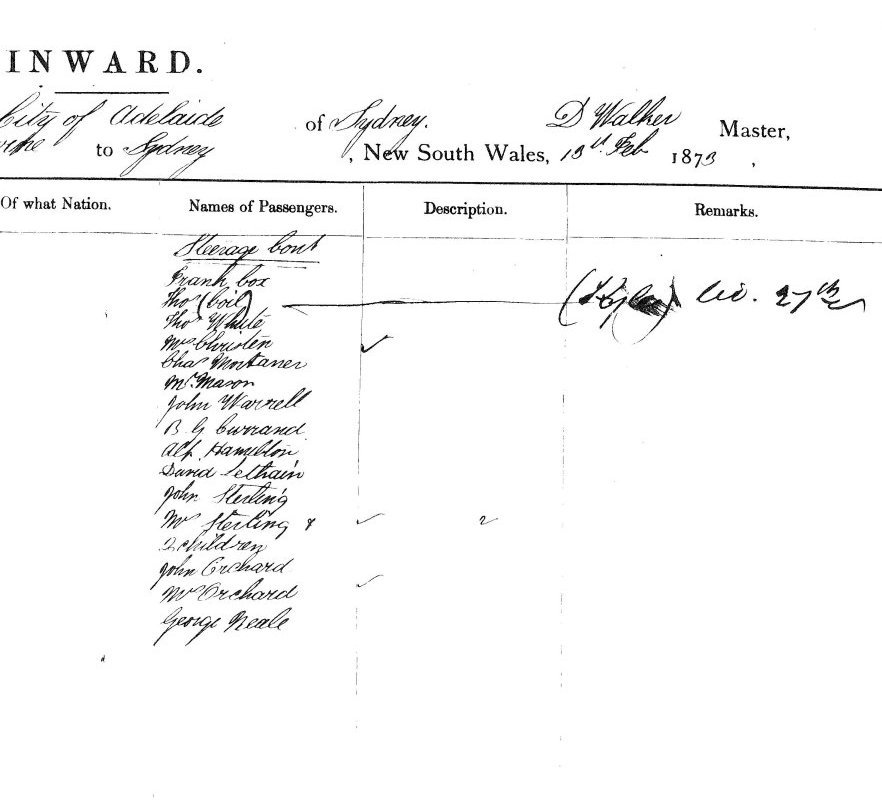 INWARD.
City of Adelaide of Sydney. D Walker Master,
to Sydney, New South Wales, 13th Feb 1873,
Of what Nation. Names of Passengers. Description. Remarks.
Steerage Cont
Frank Cox
Thos (Coil) 27th
Thos White
Mrs Christen ✓
Chas Mortaner
Mr Mason
John Warrell
B G Currand
Alf. Hamilton
David
John Sterling
Mrs Sterling & ✓ 2
2 children
John Orchard
Mrs Orchard ✓
George Neale